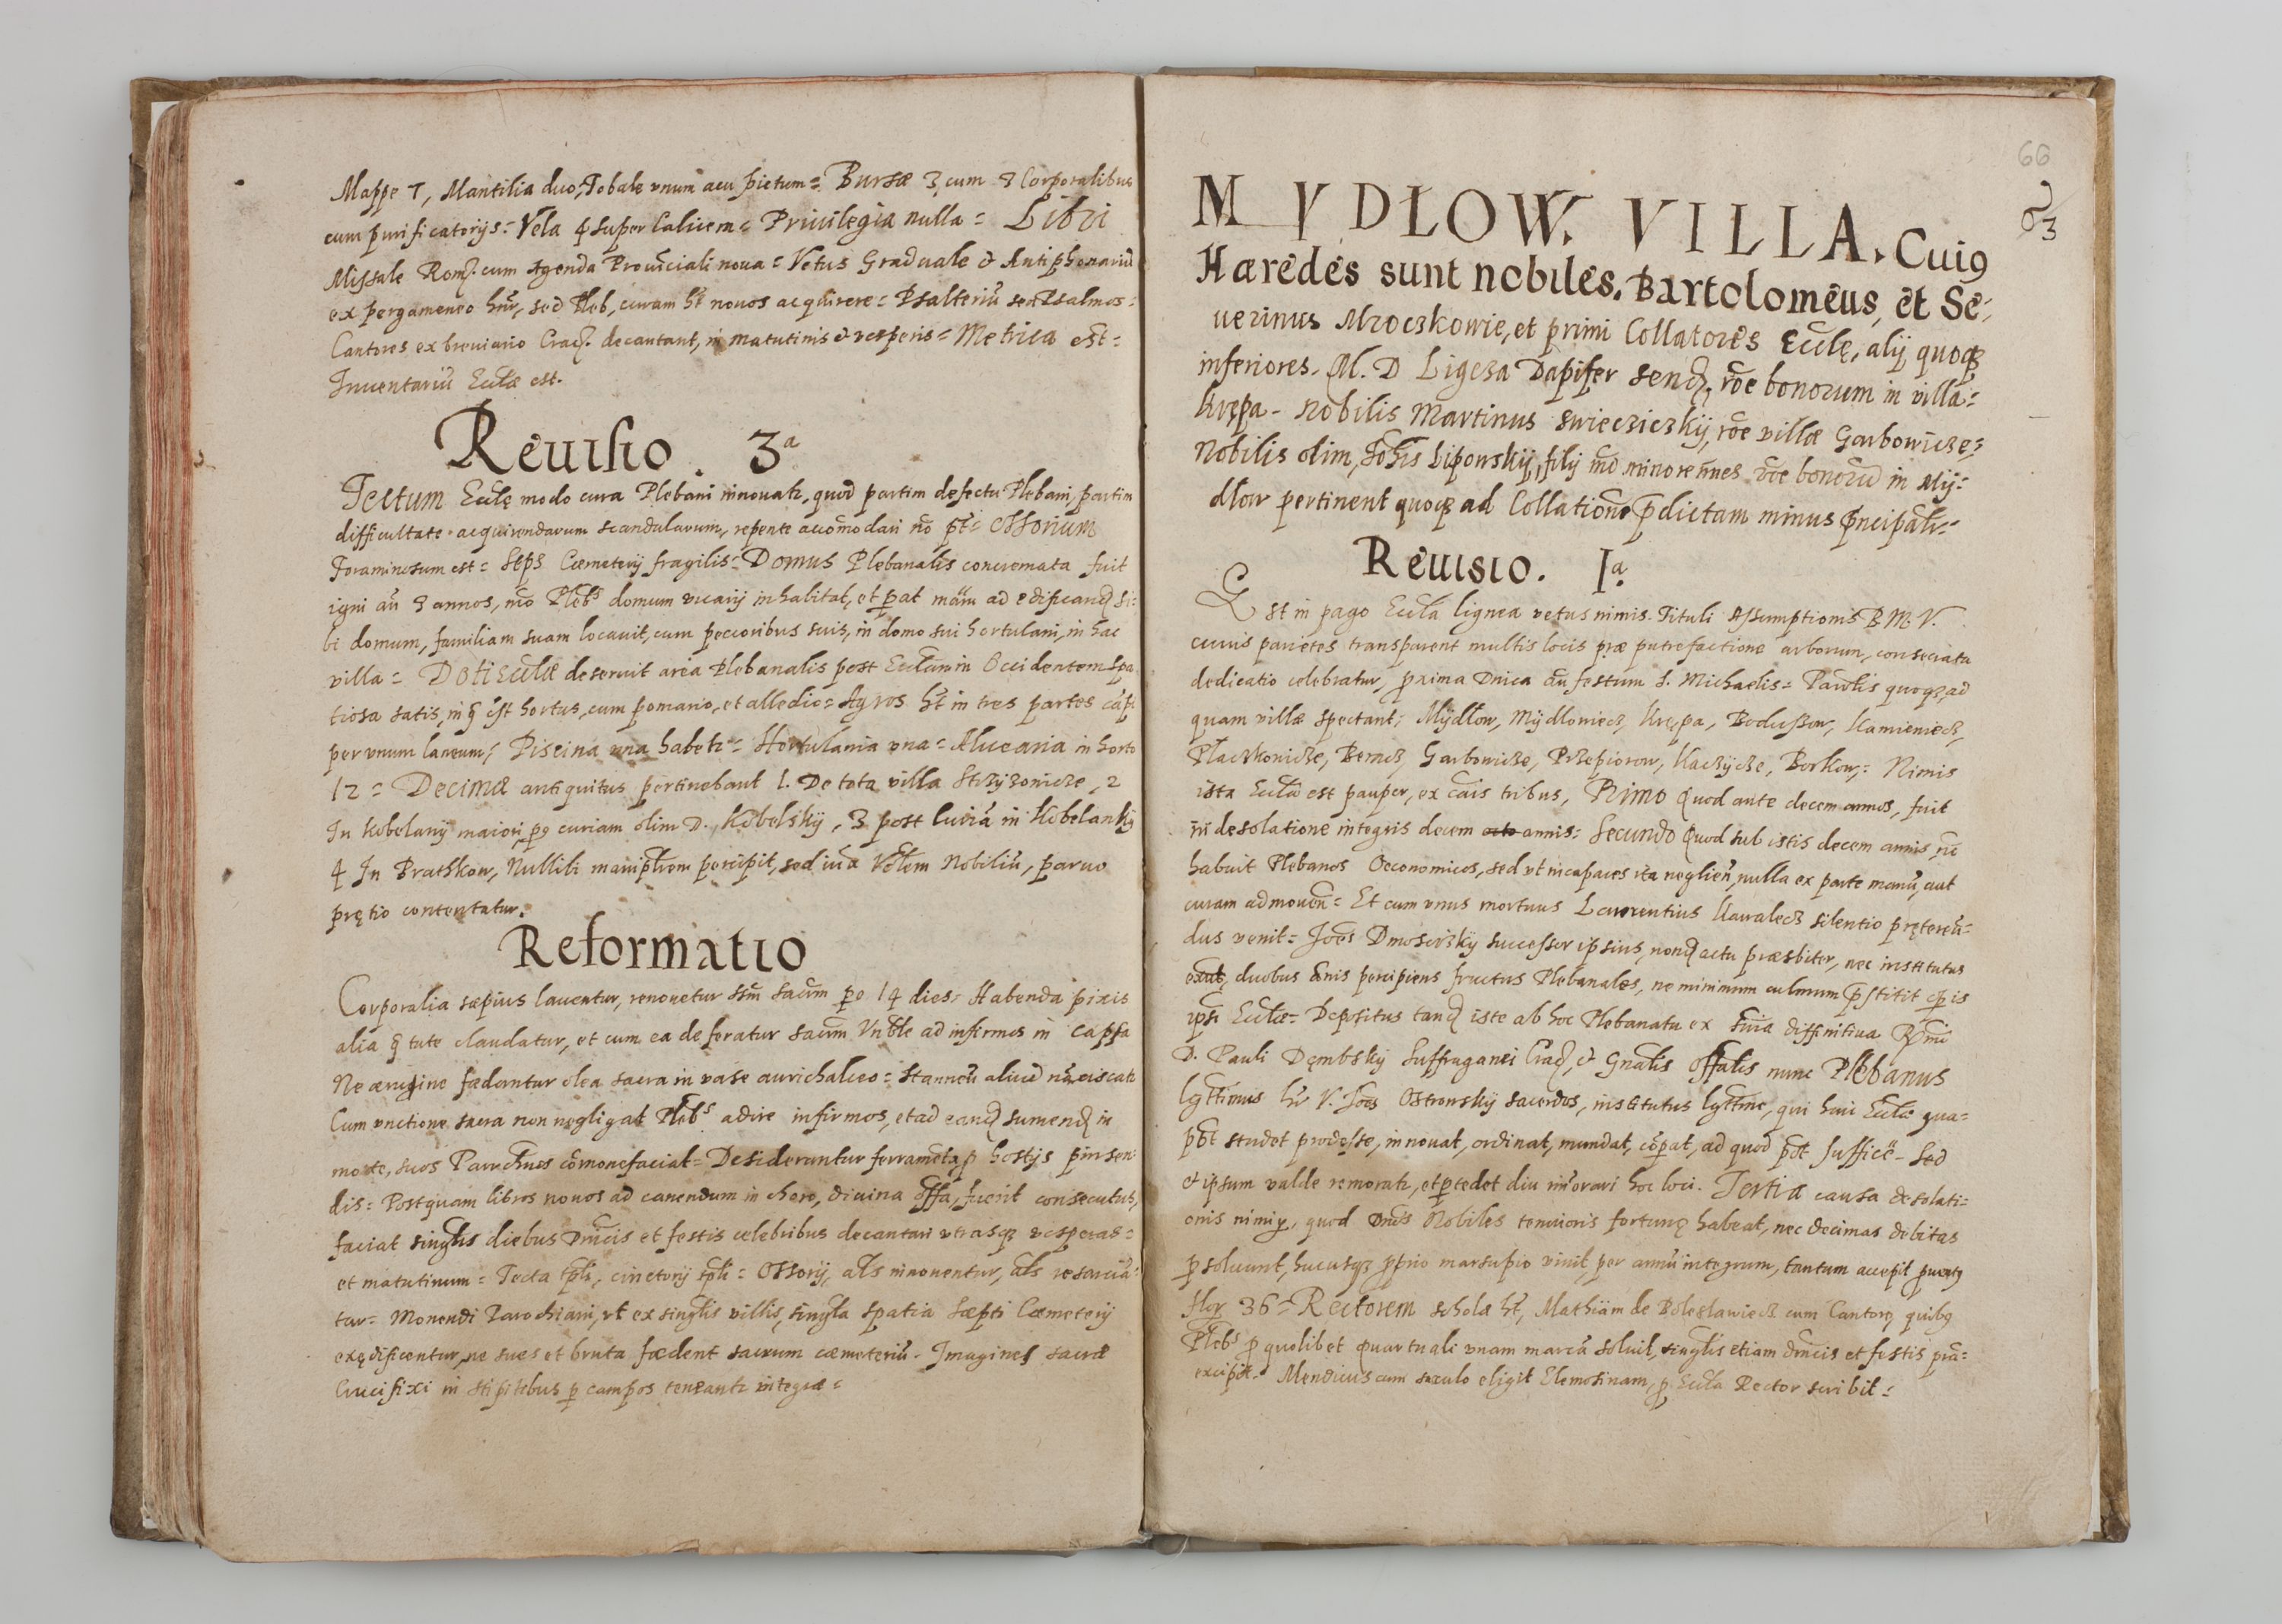 Mappe 7, Mantilia duo, Tobale vnum acu pictum = Bursæ 3 cum 8 Corporalibus
cum purificatorijs = Vela 4 super Calicem = Priuilegia nulla = Libri
Missale Rom. cum Agenda Prouĩciali noua = Vetus Graduale & Antiphonariũ
ex pergameneo hñr, sed Pleb, curam ht nouos acquirere = Psalteriũ seu Psalmos =
Cantores ex breuiario Crac. decantant, in matutinis & vesperis = Metrica est =
Inuentariũ Eccłæ est.
Reuisio. 3ª
Tectum Eccłę modo cura Plebani innouatr, quod partim defectu Plebani, partim
difficultate acquirendarum scandularum, repente accomodari nõ pt = Ossorium
Foraminosum est = Seps Cœmeterij fragilis = Domus Plebanalis concremata fuit
igni añ 8 annos, mõ Plebs domum vicarij inhabitat, et pat mãm ad edificand si-
bi domum, familiam suam locauit, cum peccoribus suis, in domo sui hortulani, in hac
villa = Doti Eccłæ deseruit area Plebanalis post Eccłam in Occidentem spa
tiosa satis, in q est hortus, cum pomario, et alledio = Agros ht in tres partes
per vnum laneum; Piscina una habetr = Hortulania vna = Aluearia in horto
12 = Decimæ antiquitus pertinebant 1. De tota villa Strzyzowicze, 2
In Kobelany maiori, po curiam olim D. Kobelskij, 3 post curiã in Kobelanky
4 In Bratkow, Nullibi manipłem percipit, sed iuxa Vołtem Nobiliũ, paruo
prętio contentatur.
Reformatio
Corporalia sæpius lauentur, renouetur ssm̃ Sacm̃ po 14 dies, Habenda pixis
alia q tute claudatur, et cum ea deferatur sacm̃ Vnble ad infirmos in Capsa
Ne ærugine fœdantur olea sacra in vase aurichalceo = Stanneũ aliud
Cum vnctione sacra non negligat Plebs adire infirmos, et ad eand sumend in
morte, suos Parochnos cõmonefaciat = Desiderantur ferramẽta p hostijs pinsen
dis = Postquam libros nouos ad canendum in choro, diuina offa, fuerit consecutus,
faciat singłis diebus Dnicis et festis celebribus decantari vtrasq vesperas =
et matutinum = Tecta tpli, cinctorij tpli = Ossorij, als innouentur, als resarciã-
tur = Monendi Parochiani, vt ex singłis villis, singła spatia Sæpti Cœmeterij
exędificentur, ne sues et bruta fœdent sacrum cœmeteriũ. Imagines sacræ
Crucifixi in stipitibus p campos teneantr integræ =
66
63
MYDŁOW. VILLA. Cui9
Hæredes sunt nobiles. Bartolomeus, et Se-
uerinus Mroczkowie, et primi Collatores Eccłę, alij quoq
inferiores. M. D Ligęza Dapifer Send, rõe bonorum in villa =
Krępa - Nobilis Martinus Swieczickij, rõe villæ Garbowicze =
Nobilis olim, Johis Lipowskij, filij mõ minorennes rõe bonorũ in Mij-
dłow pertinent quoq ad Collationẽ p̃dictam minus pncipałr =
Reuisio. Iª
Est in pago Eccła lignea vetus nimis. Tituli Assumptionis B. M. V.
cuius parietes transparent multis locis præ putrefactione arborum, consecrata
dedicatio celebratur, proxima Dnica añ festum S. Michaelis = Parochis quoq, ad
quam villæ spectant; Mydłow, Mydłowiecz, Krępa, Bodussow, Kamieniecz,
Płaczkowicze, Beracz, Garbowicze, Przepiorow, Kaczycze, Borkow; Nimis
ista Eccła est pauper, ex cais tribus, Primo Quod ante decem annos, fuit
in desolatione integris decem octo annis = Secundo Quod sub istis decem annis nõ
habuit Plebanos Oeconomicos, sed vt incapaces ita negligeñ, nulla ex parte manũ, aut
curam admouẽñ = Et cum vnus mortuus Laurentius Kawalecz silentio prętereũ-
dus venit = Joẽs Dmosiczkij successor ipsius, nond actu præsbiter, nec institutus
exut, duobus annis percipiens fructus Plebanales, ne minimum culmum p̃stitit
ipsi Eccłæ = Depositus tand iste ab hoc Plebanatu ex snia diffinitiua Rmi
D. Pauli Dęmbskij Suffraganei Crac, & Gnalis Offalis nunc Plebanus
lgttimus hr V. Joẽs Ostrowskij sacerdos, institutus lgttime, qui huic Eccłæ qua-
pt studet prodesse, innouat, ordinat, mundat, cõpat, ad quod pot sufficẽ - Sed
& ipsum valde remoratr, et ptedet diu imorari hoc loci. Tertia causa desolati-
onis nimiȩ, quod Dnos Nobiles tenuioris fortunę habeat, nec decimas debitas
p soluunt, hucusq pprio marsupio viuit, per annũ integrum, tantum accepit prouetq
flor 36 = Rectorem scholæ ht, Mathiam de Bolesławiecz cum Cantore, quib9
Plebs p quolibet quartuali vnam marcã soluit, singłis etiam dnicis et festis pran-
excipit. Mendicus cum sacculo eligit Elemosinam, p Eccła Rector scribit =